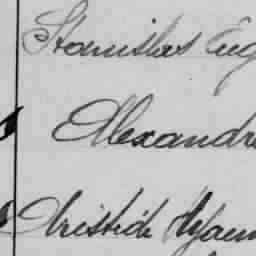 Stanislas Eug
Alexandre
Aristide Hyacin